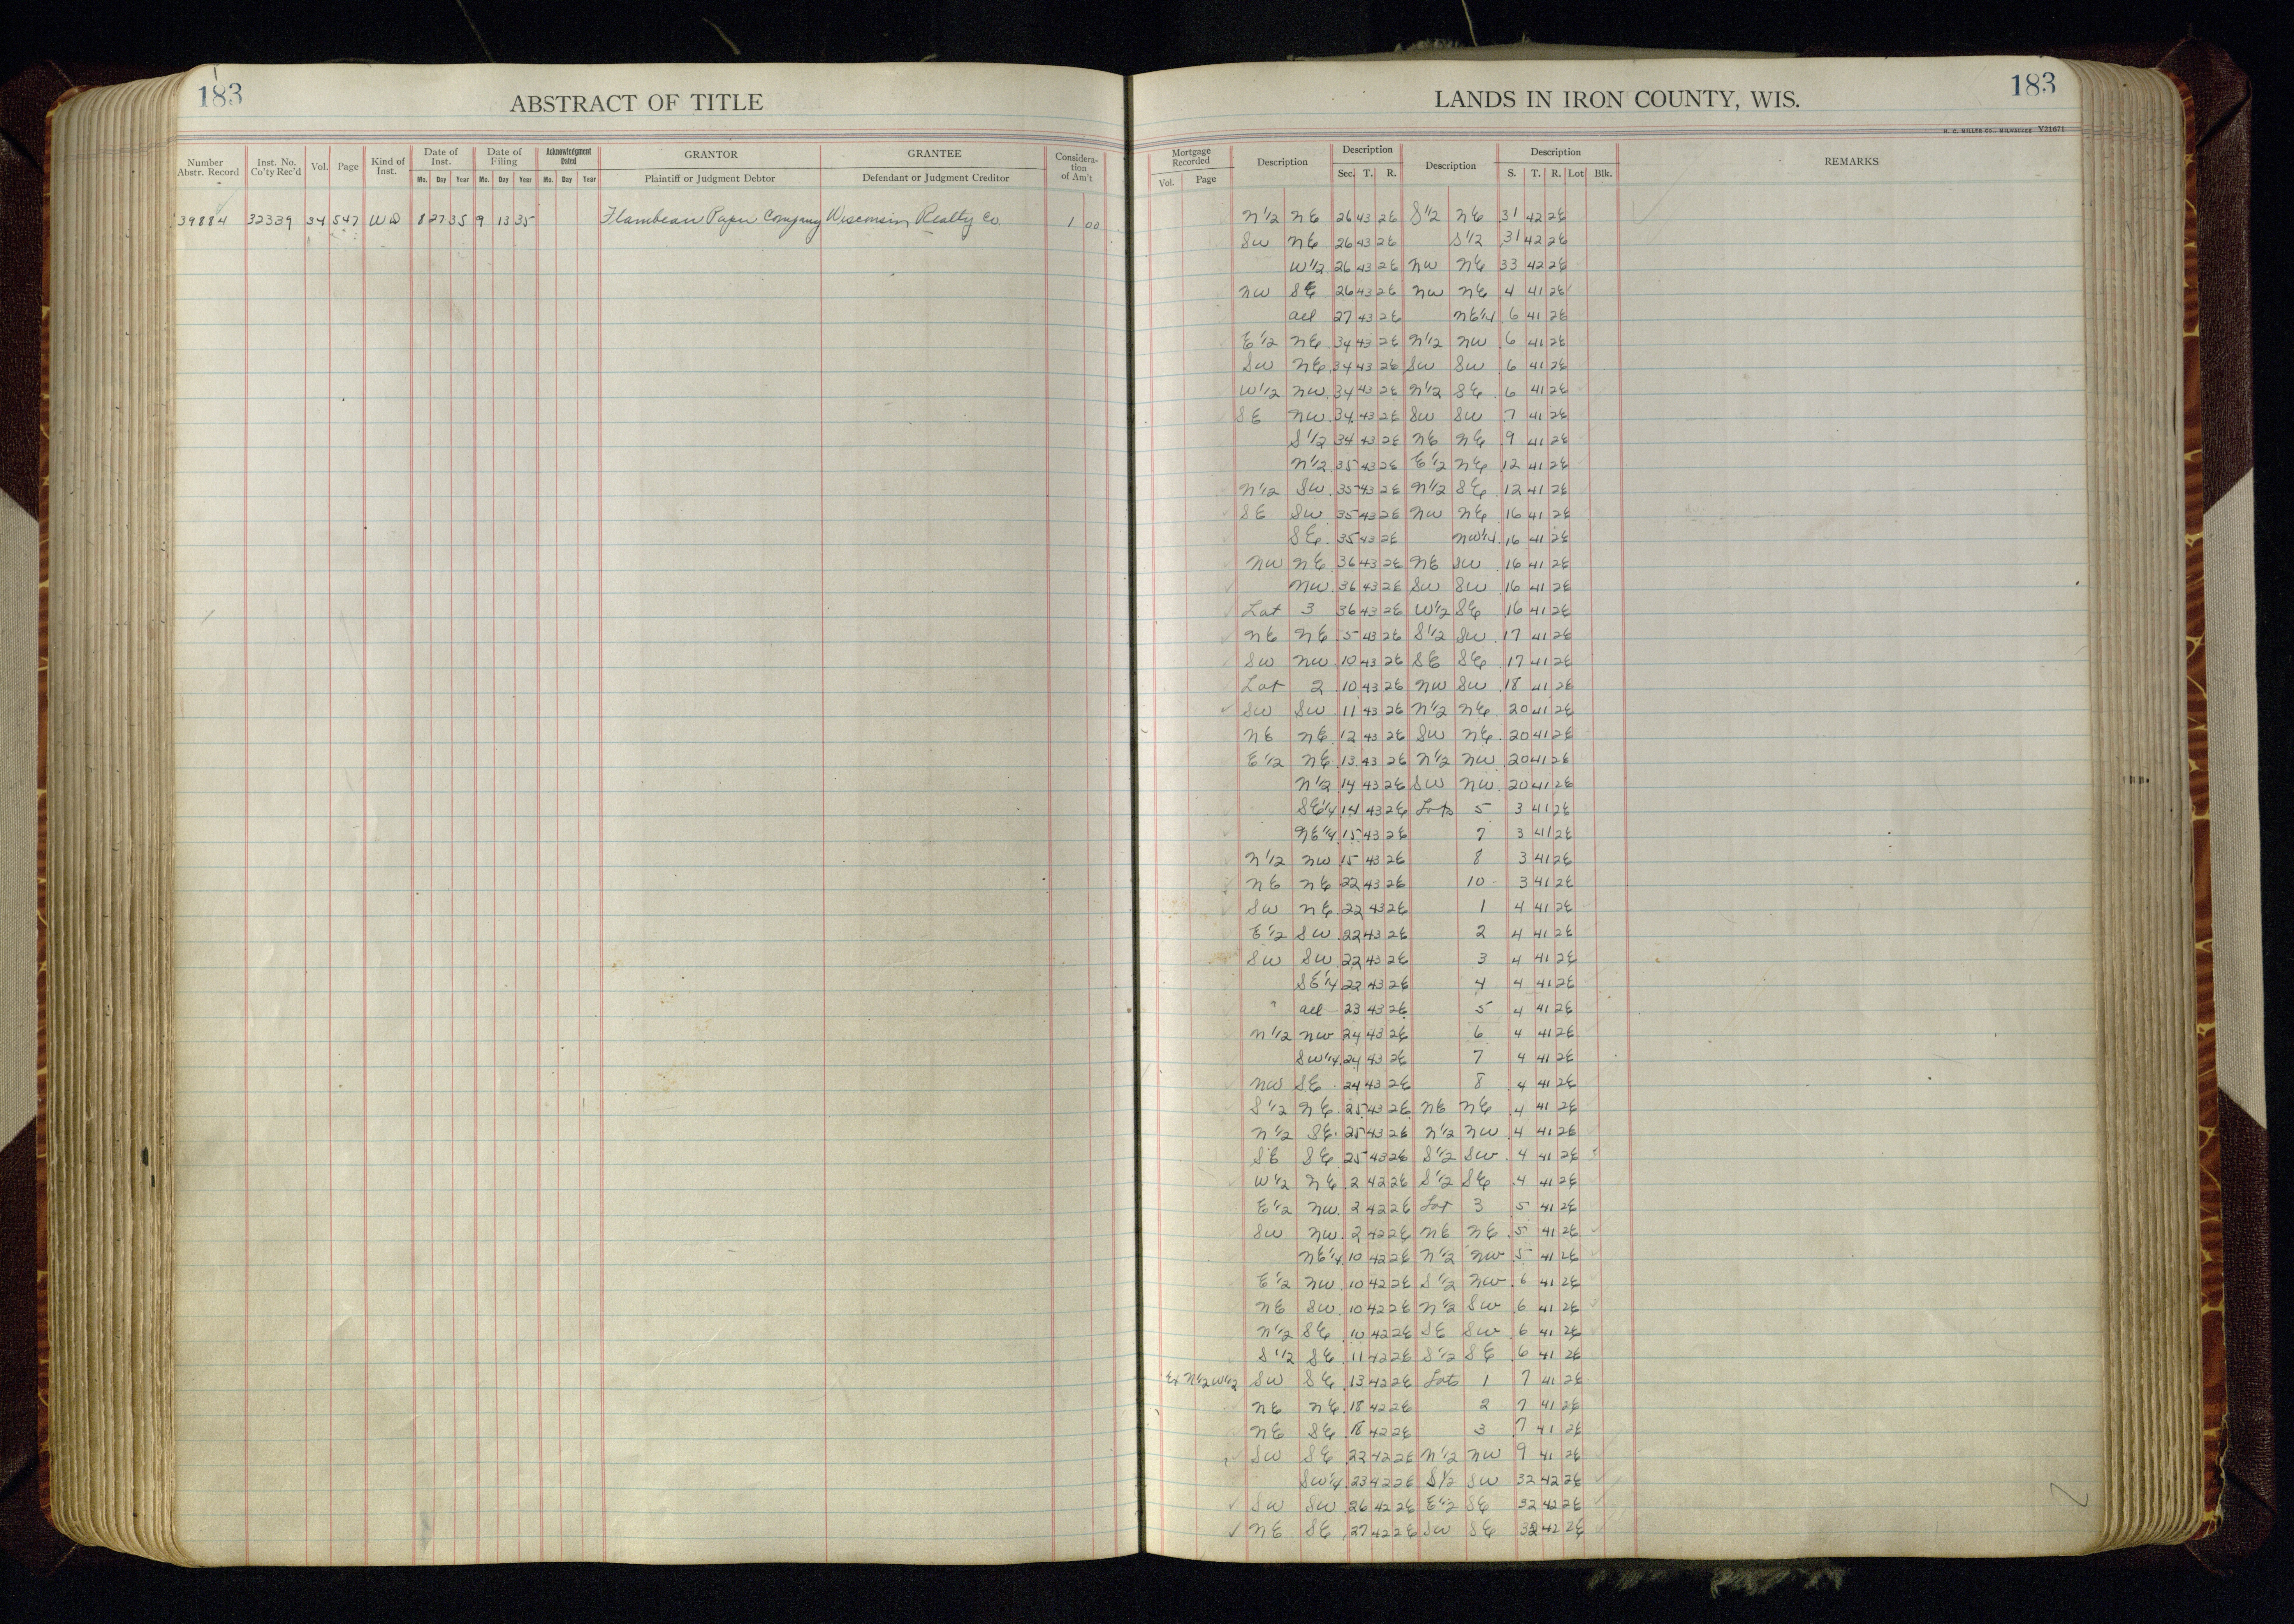 183
ABSTRACT OF TITLE
LANDS IN IRON COUNTY, WIS.
183
H. C. MILLER CO., MILWAUKEE Y21671
Number Abstr. Record Inst. No. Co'ty Rec'd Vol. Page Kind of Inst. Date of Inst. Date of Filing Acknowledgment Dated GRANTOR GRANTEE Considera-tion of Am't Mortgage Recorded Description Description Description Description REMARKS
Mo. Day Year Mo. Day Year Mo. Day Year Plaintiff or Judgment Debtor Defendant or Judgment Creditor Vol. Page Sec. T. R. S. T. R. Lot Blk.
39884 32339 34 547 WD 8 27 35 9 13 35 Flambeau Paper Company Wisconsin Realty Co. 1 00
N1/2 NE 26 43 2E S1/2 NE 31 42 2E
SW NE 26 43 2E S1/2 31 42 2E
W1/2 26 43 2E NW NE 33 42 2E
NW SE 26 43 2E NW NE 4 41 2E
all 27 43 2E NE1/4 6 41 2E
E1/2 NE 34 43 2E N1/2 NW 6 41 2E
SW NE 34 43 2E SW SW 6 41 2E
W1/2 NW 34 43 2E N1/2 SE 6 41 2E
SE NW 34 43 2E SW SW 7 41 2E
S1/2 34 43 2E NE NE 9 41 2E
N1/2 35 43 2E E1/2 NE 12 41 2E
N1/2 SW 35 43 2E N1/2 SE 12 41 2E
SE SW 35 43 2E NW NE 16 41 2E
SE 35 43 2E NW1/4 16 41 2E
NW NE 36 43 2E NE SW 16 41 2E
NW 36 43 2E SW SW 16 41 2E
Lot 3 36 43 2E W1/2 SE 16 41 2E
NE NE 5 43 2E S1/2 SW 17 41 2E
SW NW 10 43 2E SE SE 17 41 2E
Lot 2 10 43 2E NW SW 18 41 2E
SW SW 11 43 2E N1/2 NE 20 41 2E
NE NE 12 43 2E SW NE 20 41 2E
E1/2 NE 13 43 2E N1/2 NW 20 41 2E
N1/2 14 43 2E SW NW 20 41 2E
SE1/4 14 43 2E Lots 5 3 41 2E
NE1/4 15 43 2E 7 3 41 2E
N1/2 NW 15 43 2E 8 3 41 2E
NE NE 22 43 2E 10 3 41 2E
SW NE 22 43 2E 1 4 41 2E
E1/2 SW 22 43 2E 2 4 41 2E
SW SW 22 43 2E 3 4 41 2E
SE1/4 22 43 2E 4 4 41 2E
all 23 43 2E 5 4 41 2E
N1/2 NW 24 43 2E 6 4 41 2E
SW1/4 24 43 2E 7 4 41 2E
NW SE 24 43 2E 8 4 41 2E
S1/2 NE 25 43 2E NE NE 4 41 2E
N1/2 SE 25 43 2E N1/2 NW 4 41 2E
SE SE 25 43 2E S1/2 SW 4 41 2E
W1/2 NE 2 42 2E S1/2 SE 4 41 2E
E1/2 NW 2 42 2E Lot 3 5 41 2E
SW NW 2 42 2E NE NE 5 41 2E
NE1/4 10 42 2E N1/2 NW 5 41 2E
E1/2 NW 10 42 2E S1/2 NW 6 41 2E
NE SW 10 42 2E N1/2 SW 6 41 2E
N1/2 SE 10 42 2E SE SW 6 41 2E
S1/2 SE 11 42 2E S1/2 SE 6 41 2E
Ex N1/2 W1/2 SW SE 13 42 2E Lots 1 7 41 2E
NE NE 18 42 2E 2 7 41 2E
NE SE 18 42 2E 3 7 41 2E
SW SE 22 42 2E N1/2 NW 9 41 2E
SW1/4 23 42 2E S1/2 SW 32 42 2E
SW SW 26 42 2E E1/2 SE 32 42 2E
NE SE 27 42 2E SW SE 32 42 2E